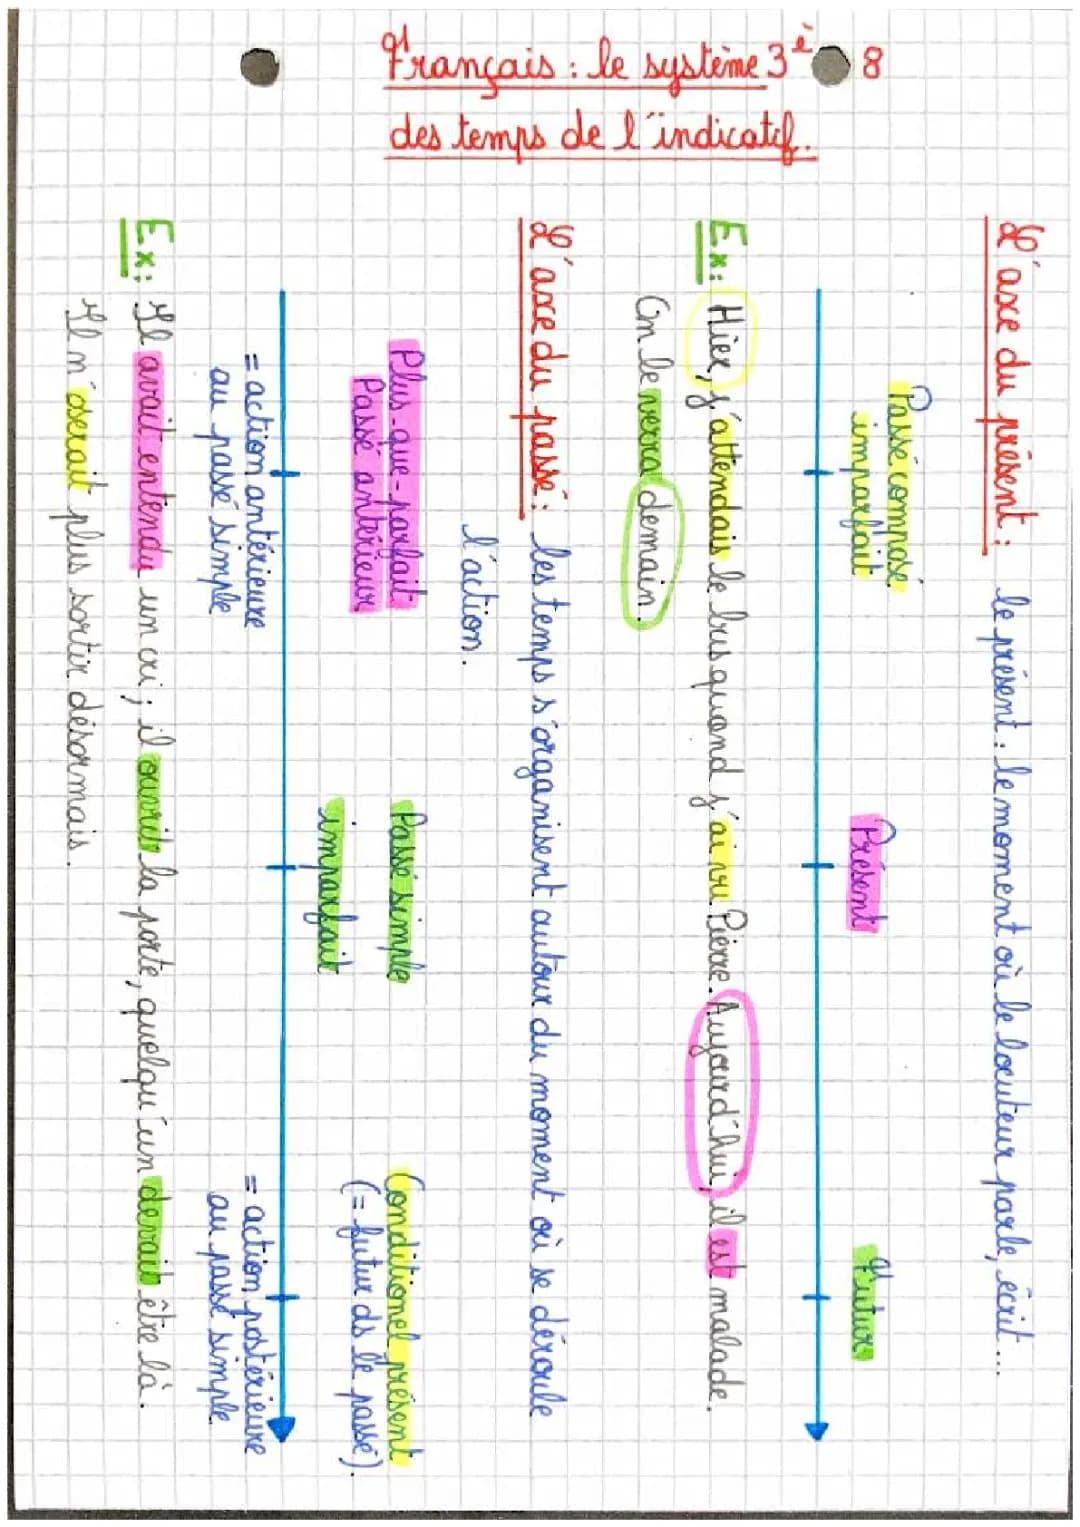 Français : le système 3è 8
des temps de l'indicatif.
L'axe du présent : le présent : le moment où le locuteur parle, écrit...
Passé composé
imparfait
Présent
Futur
Ex : Hier, j'attendais le bus quand j'ai vu Pierre. Aujourd'hui, il est malade.
On le verra demain.
L'axe du passé : les temps s'organisent autour du moment où se déroule
l'action.
Plus-que-parfait
Passé antérieur
Passé simple
imparfait
Conditionel présent
(= futur ds le passé).
= action antérieure
au passé simple
= action postérieure
au passé simple
Ex : Il avait entendu un cri ; il ouvrit la porte, quelqu'un devait être là.
Il n'oserait plus sortir désormais.